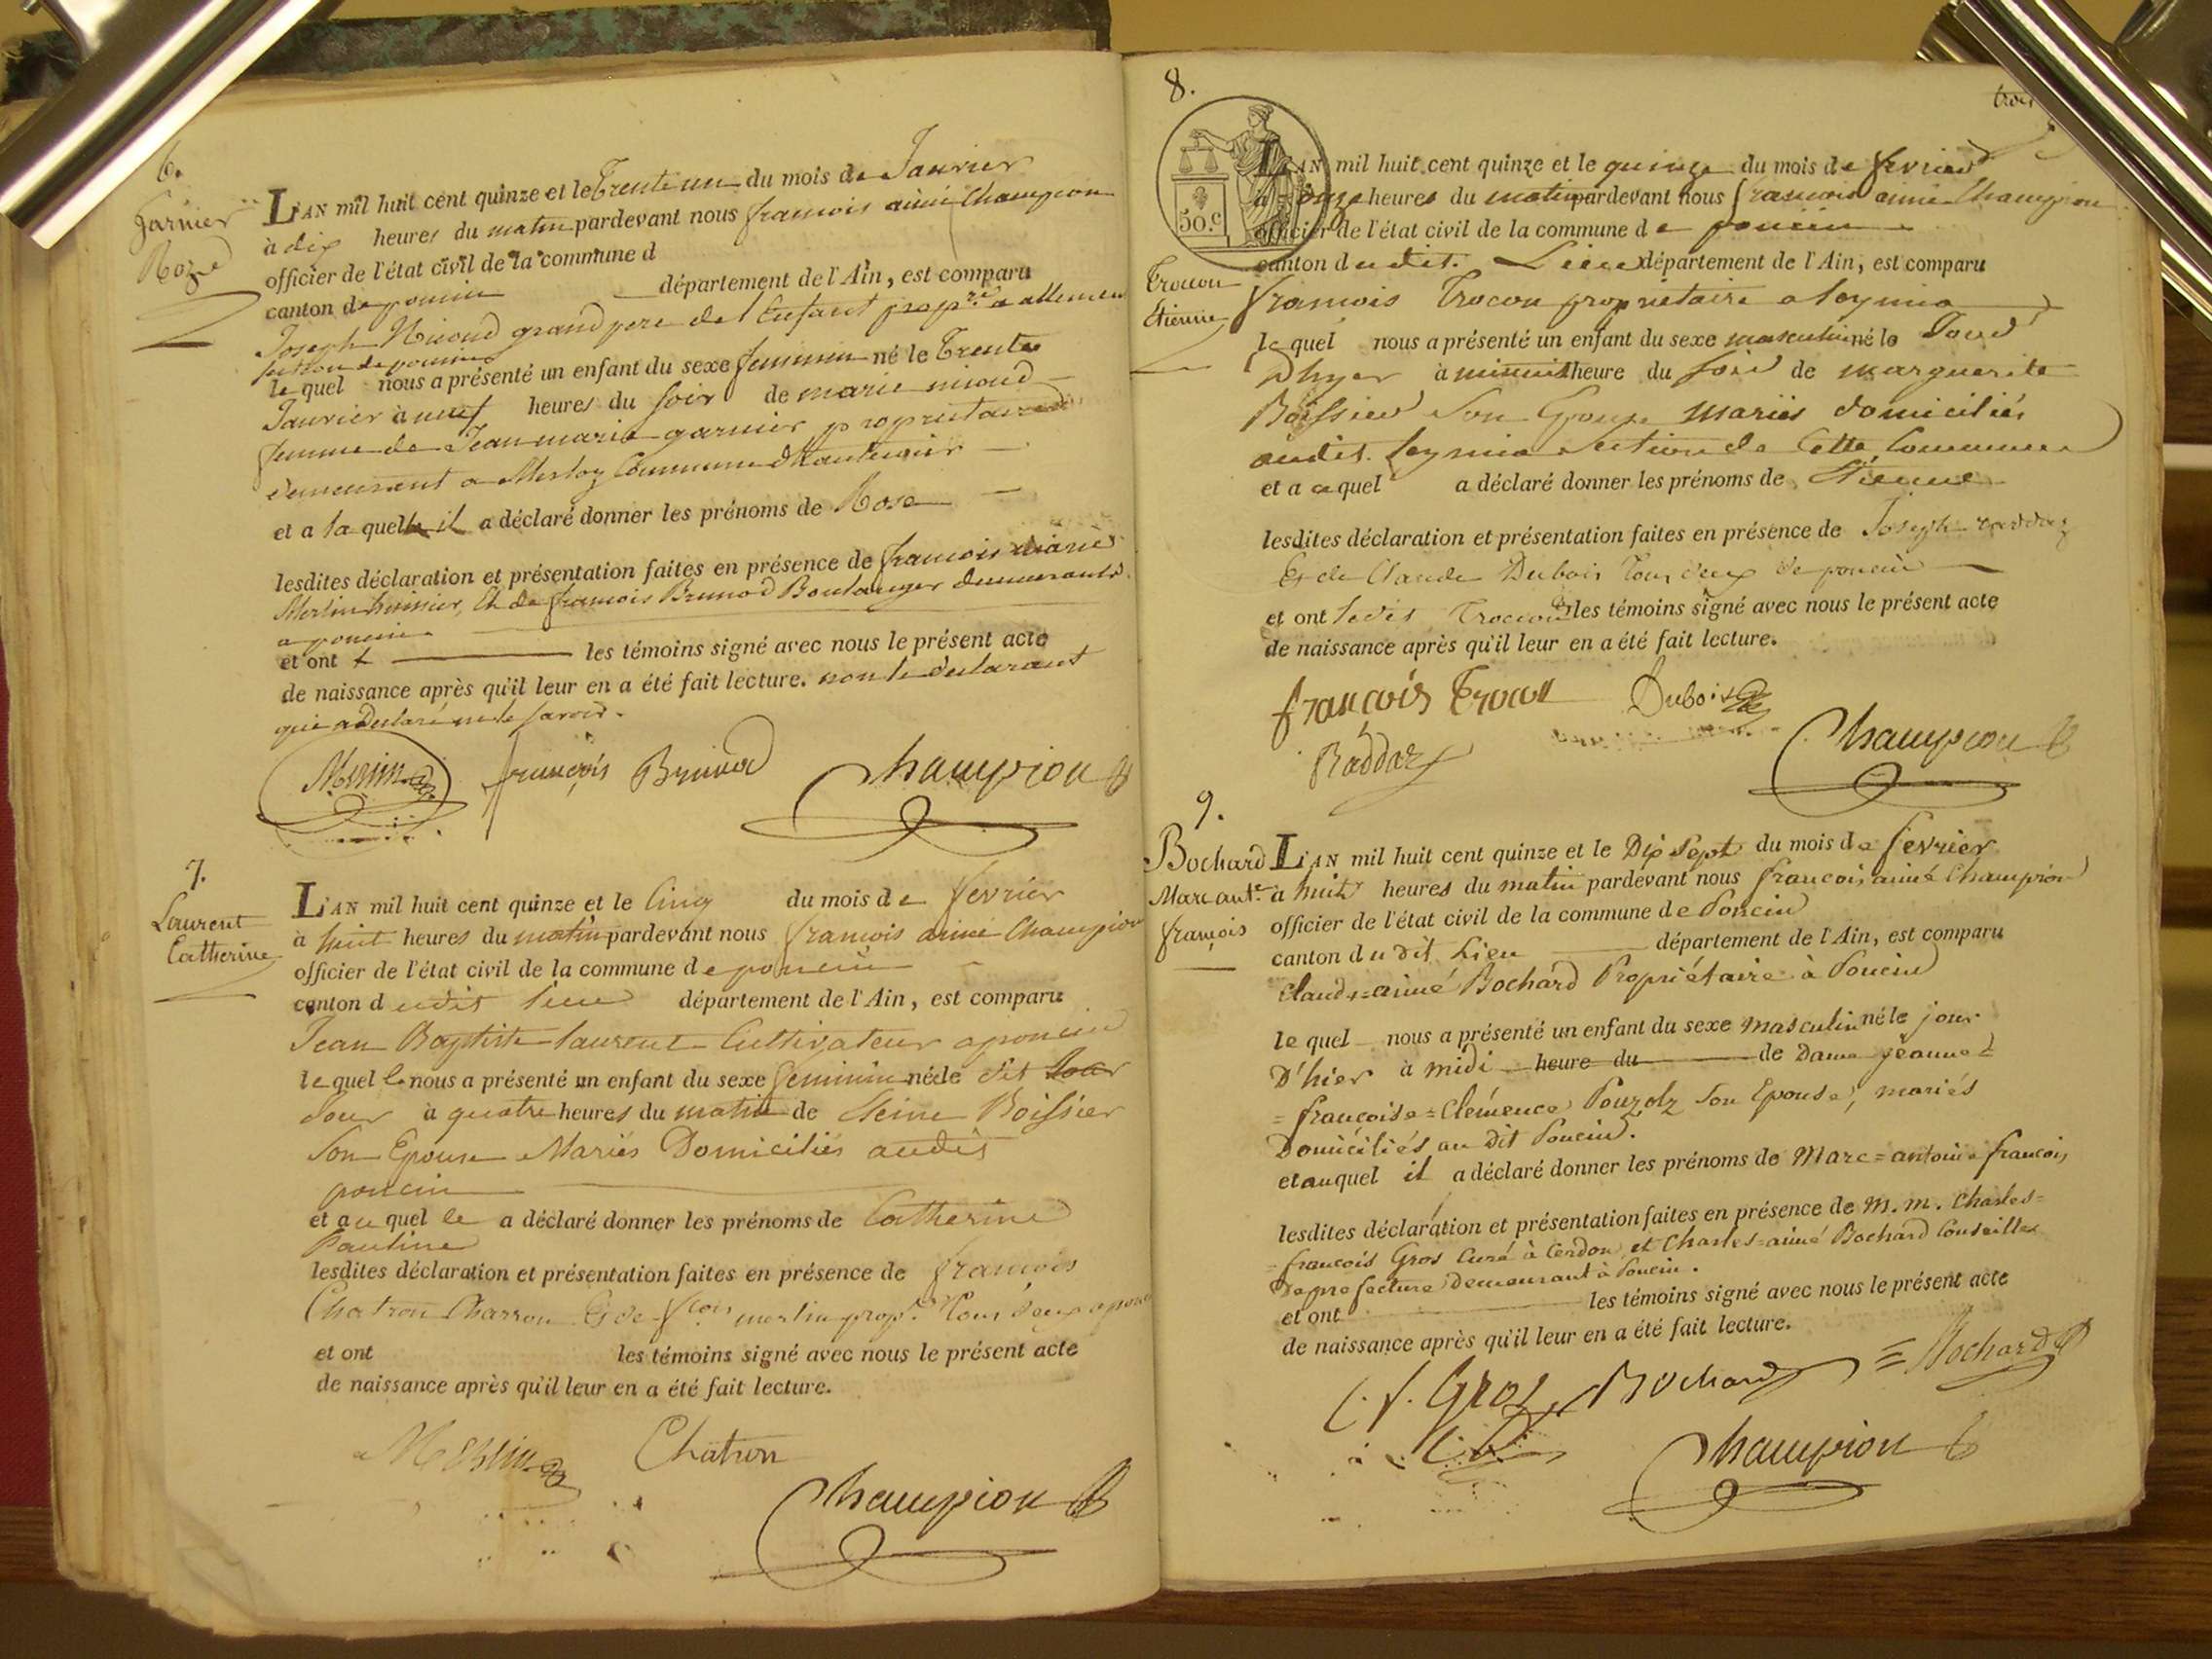 6.
Garnier
Roze
L'AN mil huit cent quinze et le Trente un du mois de Janvier
à dix heures du matin pardevant nous francois aimé Champion
officier de l'état civil de la commune d
canton de poncin département de l'Ain, est comparu
Joseph Nioud grand pere de l'Enfant prop.re a allement
section de poncin
le quel nous a présenté un enfant du sexe feminin né le Trente
Janvier à neuf heures du soir de marie nioud
femme de Jean marie garnier proprietaires
demeurant a Merloz Commune d
et a la quelle il a déclaré donner les prénoms de Rose
lesdites déclaration et présentation faites en présence de francois marie
Merlin huissier, Et de francois Brunod Boulanger demeurants
a poncin
et ont les témoins signé avec nous le présent acte
de naissance après qu'il leur en a été fait lecture. non le declarant
qui a declaré ne le savoir.
Merlin françois Brunod Champion
7.
Laurent
Catherine
L'AN mil huit cent quinze et le Cinq du mois de fevrier
à huit heures du matin pardevant nous francois aimé Champion
officier de l'état civil de la commune de poncin
canton dudit lieu département de l'Ain, est comparu
Jean Baptiste laurent Cultivateur a poncin
le quel le nous a présenté un enfant du sexe feminin née le dit Jour
Jour à quatre heures du matin de Boissier
Son Epouse Mariés Domiciliés audit
poncin
et au quel le a déclaré donner les prénoms de Catherine
Pauline
lesdites déclaration et présentation faites en présence de francois
Chatron Charron Et de f.cois merlin prop.re Tous deux a poncin
et ont les témoins signé avec nous le présent acte
de naissance après qu'il leur en a été fait lecture.
Merlin Chatron
Champion
8.
trois
50.c
Trocon
Etienne
L'AN mil huit cent quinze et le quinze du mois de fevrier
a onze heures du matin pardevant nous francois aimé Champion
officier de l'état civil de la commune de poncin
canton dudit Lieu département de l'Ain, est comparu
francois Trocon proprietaire a leymia
le quel nous a présenté un enfant du sexe masculin né le Jour
D'hyer à minuit heure du soir de marguerite
Boissier Son Epouse mariés domiciliés
audit leymia Section de Cette Commune
et a a quel a déclaré donner les prénoms de Etienne
lesdites déclaration et présentation faites en présence de Joseph raddaz
Et de Claude Dubois Tous deux de poncin
et ont ledit Trocon et les témoins signé avec nous le présent acte
de naissance après qu'il leur en a été fait lecture.
françois Trocon Dubois
Raddaz Champion
9.
Bochard
Marc ant.e
françois
L'AN mil huit cent quinze et le Dix Sept du mois de fevrier
à huit heures du matin pardevant nous francois aimé Champion
officier de l'état civil de la commune de Poncin
canton du dit Lieu département de l'Ain, est comparu
Claude=aimé Bochard Propriétaire à Poncin
le quel nous a présenté un enfant du sexe masculin né le jour
D'hier à midi heure du de Dame jeanne
=françoise=Clémence Pouzolz Son Epouse, mariés
Domiciliés au dit Poncin.
et au quel il a déclaré donner les prénoms de Marc=antoine françois
lesdites déclaration et présentation faites en présence de M.M. Charles=
=francois Gros Curé à Cerdon, et Charles=aimé Bochard Conseiller
De prefecture Demeurant à Poncin.
et ont les témoins signé avec nous le présent acte
de naissance après qu'il leur en a été fait lecture.
C.f. Gros Bochard Bochard
Champion